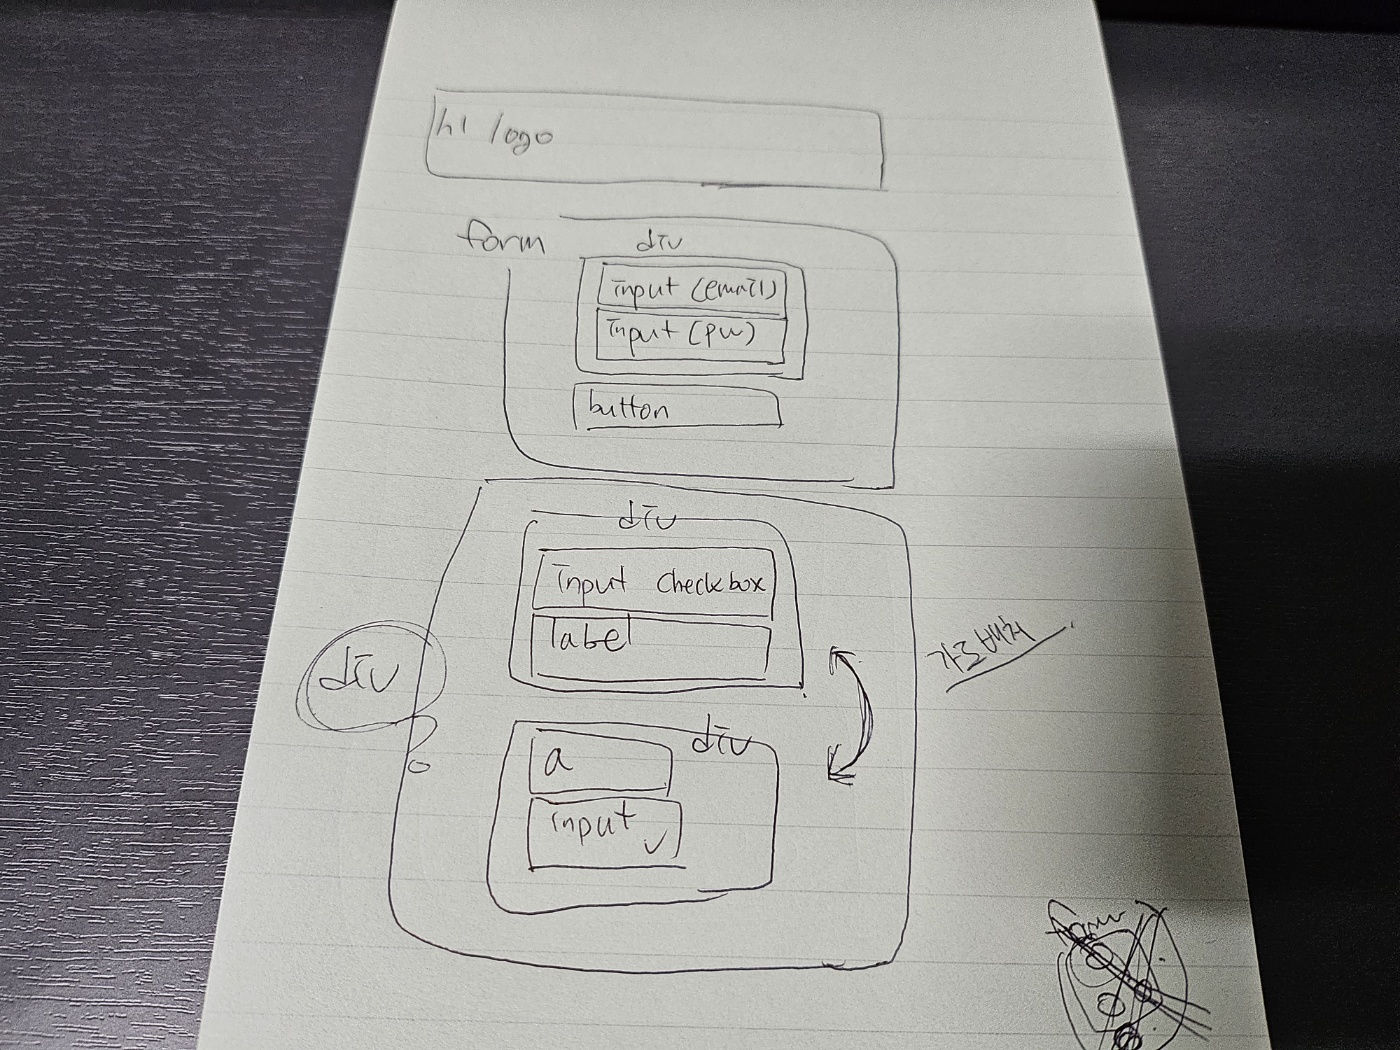 h1 logo
form
div
input (email)
input (pw)
button
div
input checkbox
label
div
가로배치
div
a
input